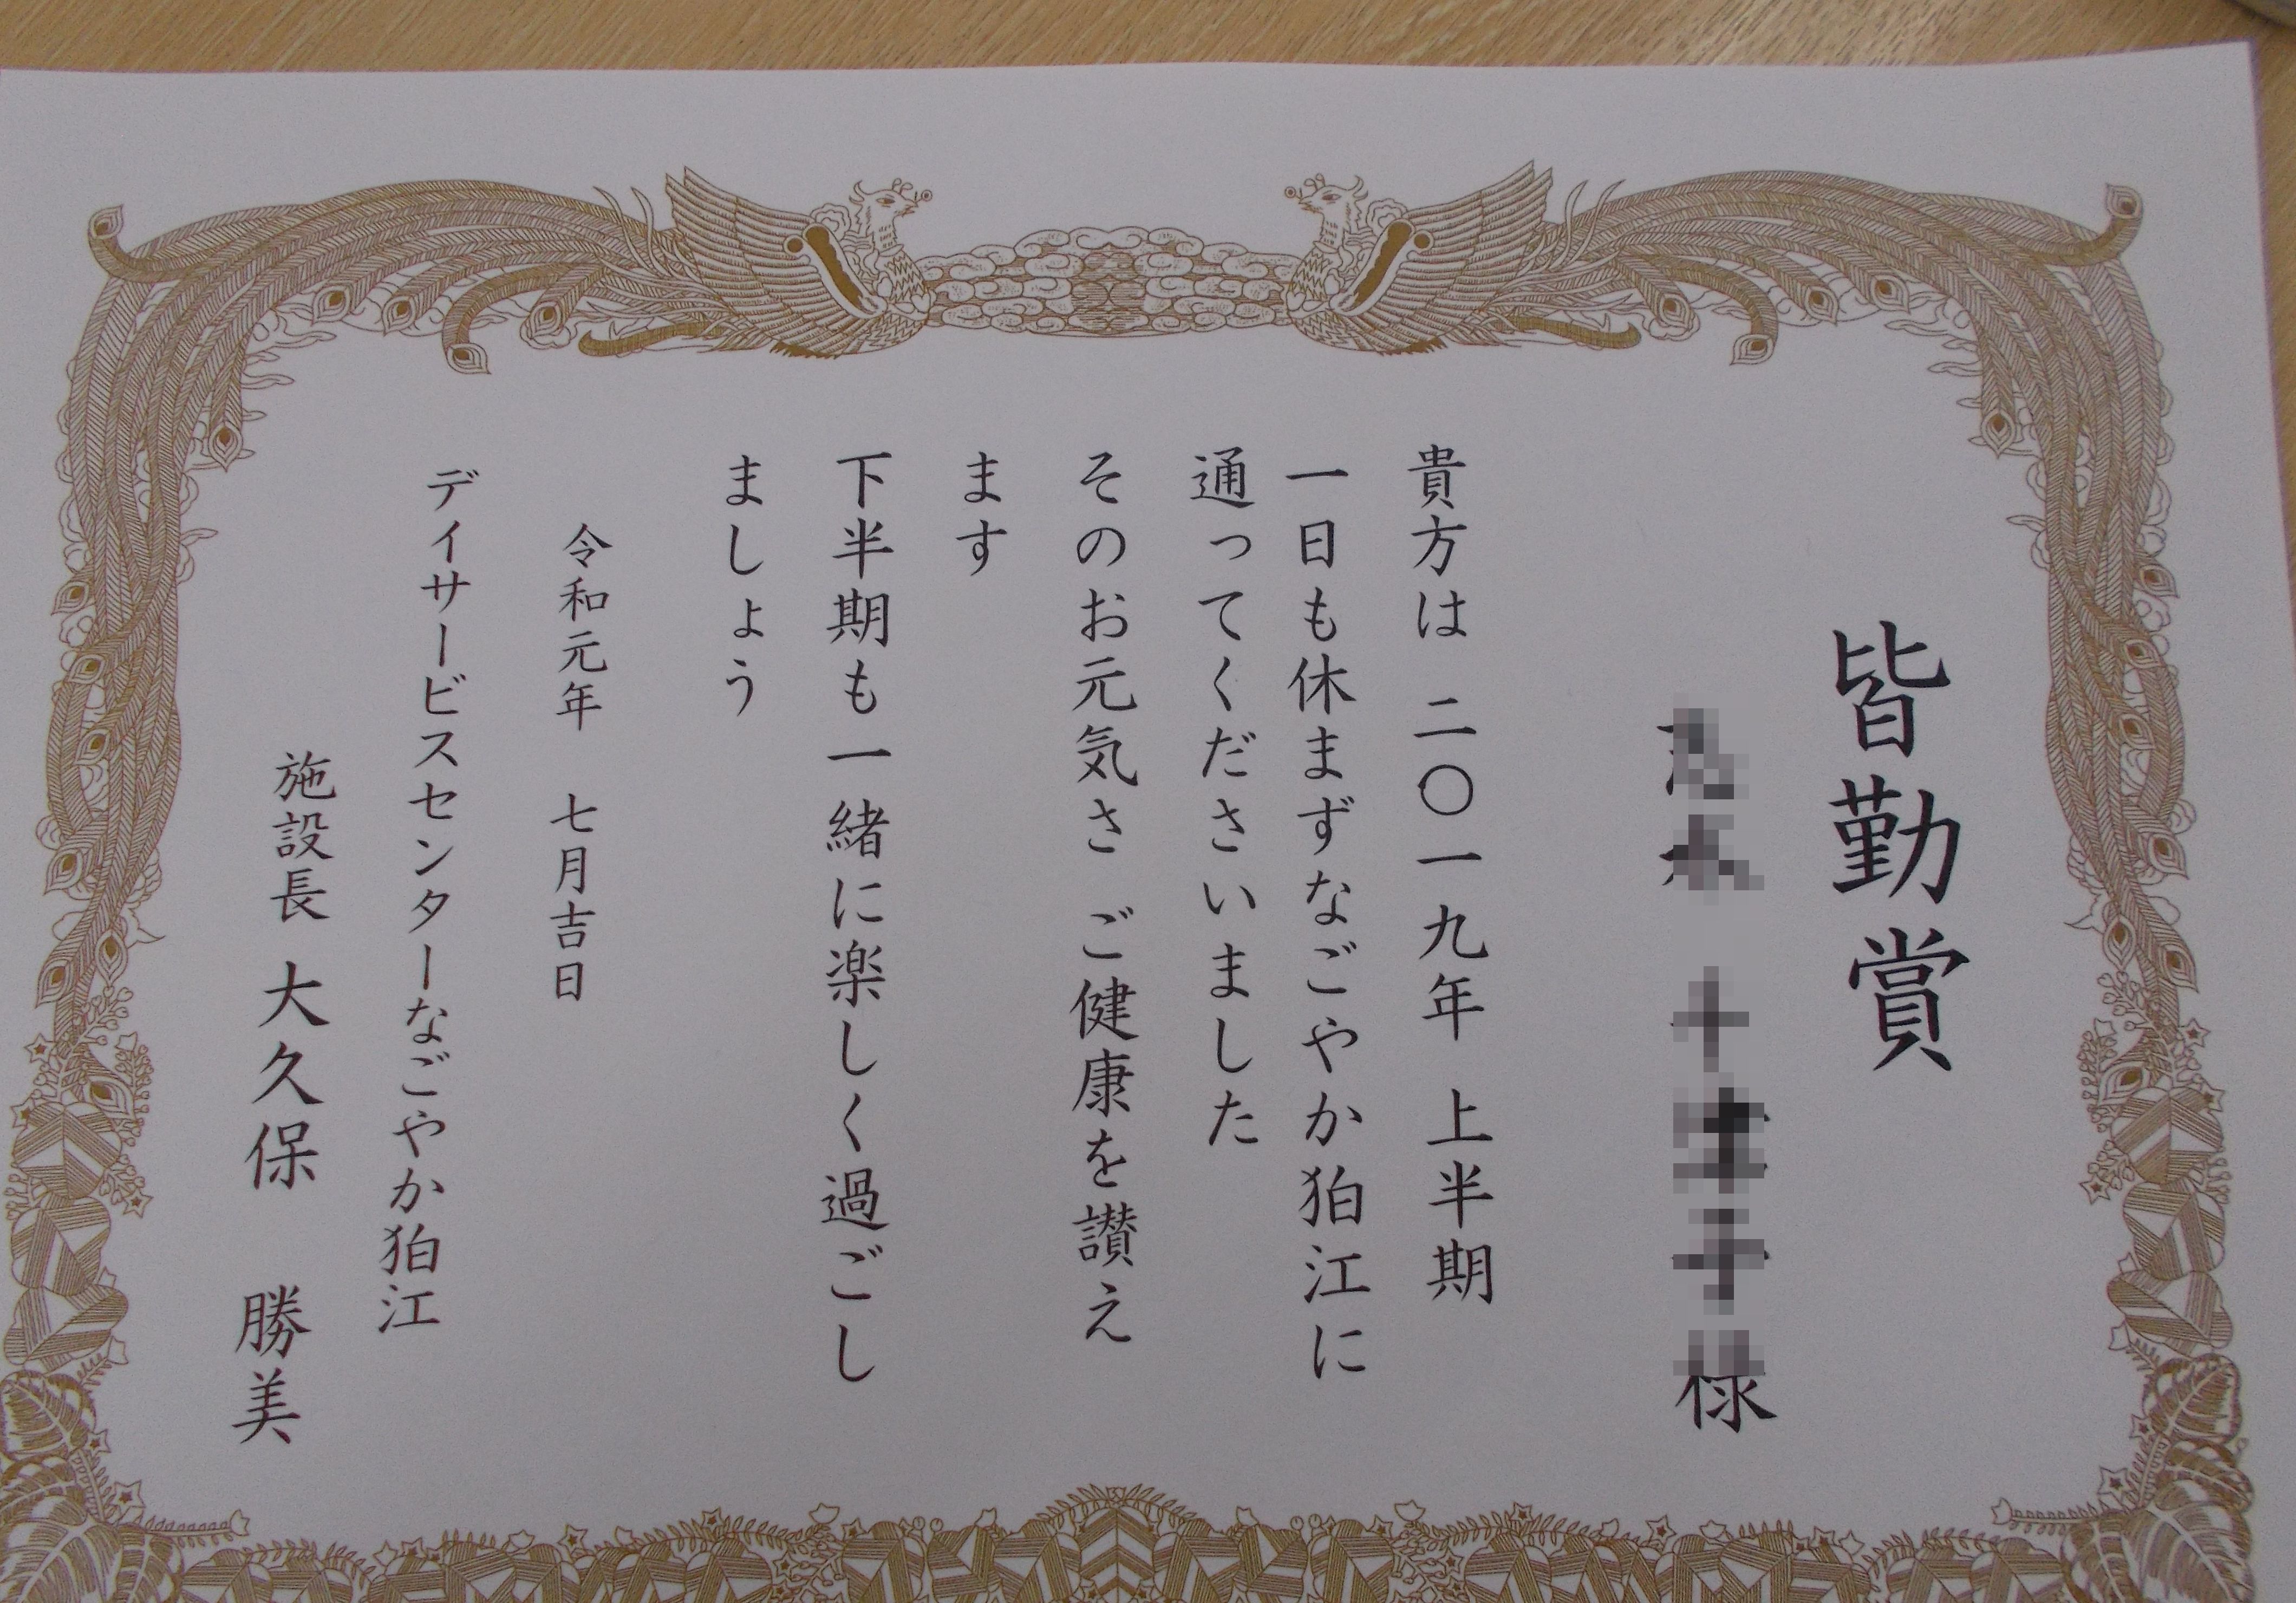 皆勤賞
様
貴方は 二〇一九年 上半期
一日も休まずなごやか狛江に
通ってくださいました
そのお元気さ ご健康を讃え
ます
下半期も一緒に楽しく過ごし
ましょう
令和元年 七月吉日
デイサービスセンターなごやか狛江
施設長 大久保 勝美